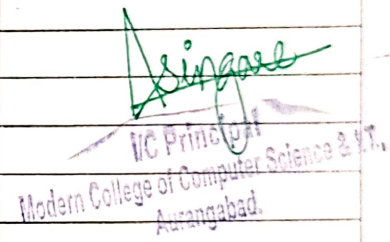 Asingare
I/C Principal
Modern College of Computer Science & I.T.,
Aurangabad.